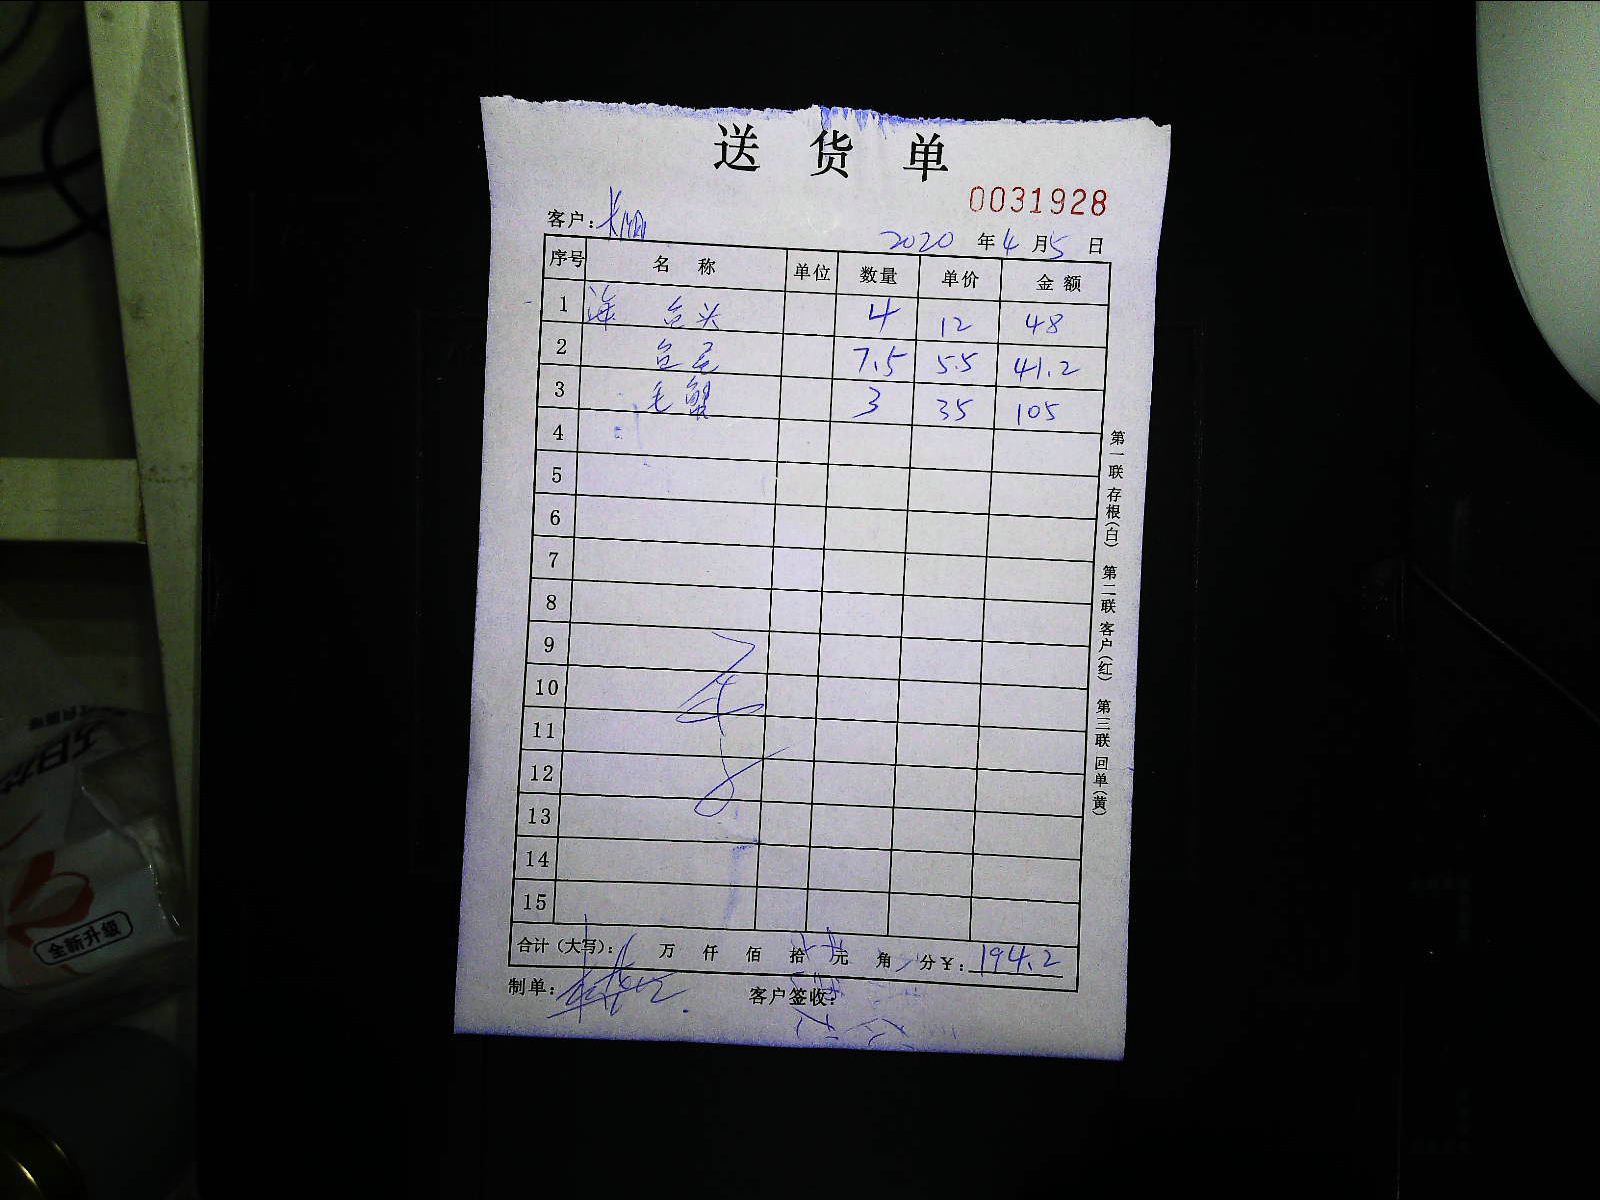 送货单
0031928
客户:
2020 年 4 月 5 日
序号 名称 单位 数量 单价 金额
1 海 鱼头 4 12 48
2 鱼尾 7.5 5.5 41.2
3 毛蟹 3 35 105
4
5
6
7
8
9
10
11
12
13
14
15
合计(大写): 万 仟 佰 拾 元 角 分 ¥: 194.2
制单: 客户签收:
第一联 存根(白) 第二联 客户(红) 第三联 回单(黄)
全新升级